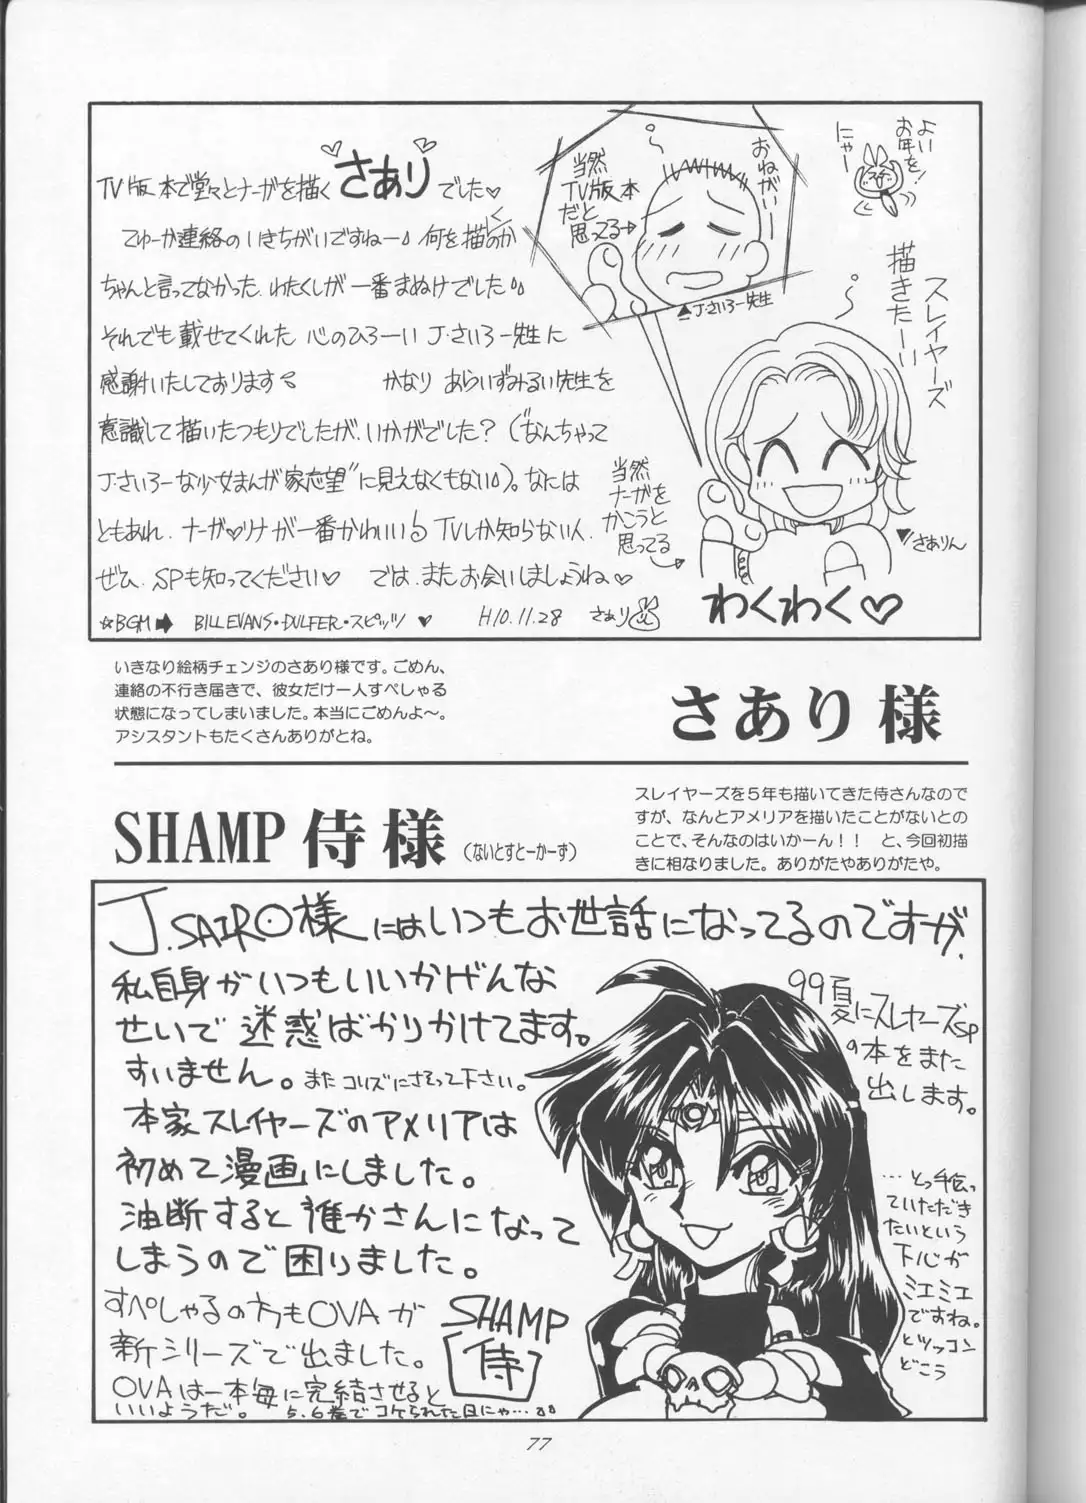 TV版本で堂々とナーガを描く さあり でした♡
てゆーか連絡のいきちがいですねー 何を描くのか
ちゃんと言ってなかった、わたくしが一番まぬけでした
それでも載せてくれた 心のひろーい J・さいろー先生に
感謝いたしております かなり あらいずみるい先生を
意識して描いたつもりでしたが、いかがでした?(“なんちゃって
J・さいろーな少女まんが家志望”に見えなくもない)。なには
ともあれ、ナーガ♡リナが一番かわいい TVしか知らない人、
ぜひ、SPも知ってください♡ では、またお会いしましょうね♡
☆BGM➡ BILL EVANS・DULFER・スピッツ ♥ H10.11.28 さあり
よい
お年を!
にゃー
おねがいー
当然
TV版本
だと
思ってる→
▲J・さいろー先生
スレイヤーズ
描きたーい
当然
ナーガを
かこうと
思ってる
▼さありん
わくわく♡
いきなり絵柄チェンジのさあり様です。ごめん、
連絡の不行き届きで、彼女だけ一人すぺしゃる
状態になってしまいました。本当にごめんよ~。
アシスタントもたくさんありがとね。
さあり 様
SHAMP 侍 様 (ないとすとーかーず)
スレイヤーズを5年も描いてきた侍さんなので
すが、なんとアメリアを描いたことがないとの
ことで、そんなのはいかーん!! と、今回初描
きに相なりました。ありがたやありがたや。
J.SAIRO様にはいつもお世話になってるのですが、
私自身がいつもいいかげんな
せいで迷惑ばかりかけてます。
すいません。またコリズにさそって下さい。
本家スレイヤーズのアメリアは
初めて漫画にしました。
油断すると誰かさんになって
しまうので困りました。
すぺしゃるの方もOVAが
新シリーズで出ました。
OVAは一本毎に完結させると
いいようだ。 5.6巻でコケられた日にゃ…
SHAMP
侍
99夏にスレイヤーズSP
の本をまた
出します。
…とっ手伝っ
ていただき
たいという
下心が
ミエミエ
ですね。
とツッコン
どこう
77